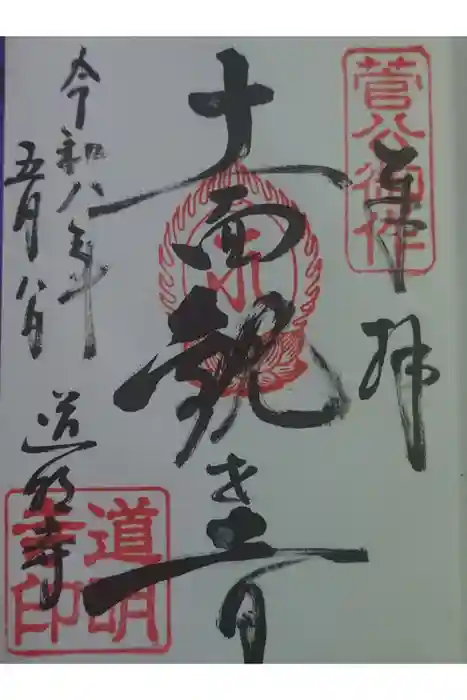 菅公御作
奉拝
十一面観世音
令和八年
五月八日
道明寺
道明寺印